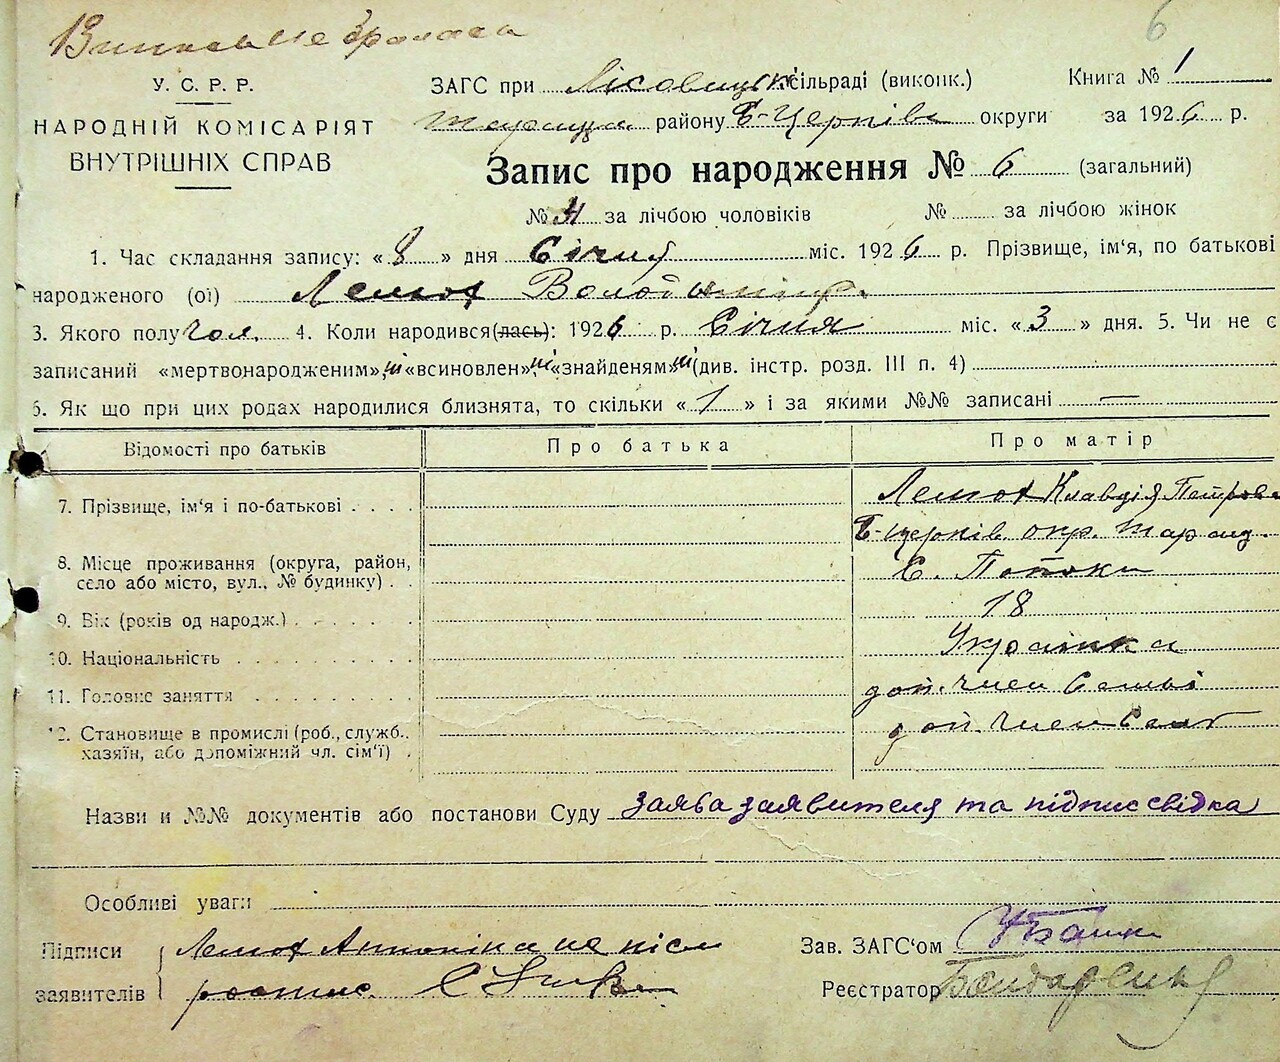 6
У. С. Р. Р.
НАРОДНІЙ КОМІСАРІЯТ
ВНУТРІШНІХ СПРАВ
ЗАГС при Лісовицькій сільраді (виконк.) Книга № 1
району Б-Церківе округи за 1926 р.
Запис про народження № 6 (загальний)
№ 4 за лічбою чоловіків № за лічбою жінок
1. Час складання запису: « 8 » дня Січня міс. 1926 р. Прізвище, ім'я, по батькові
народженого (ої) Лемох Володымир.
3. Якого полу Чол. 4. Коли народився(лась): 1926 р. Січня міс. « 3 » дня. 5. Чи не є
записаний «мертвонародженим», ні «всиновлен», ні «знайденям» ні (див. інстр. розд. III п. 4)
6. Як що при цих родах народилися близнята, то скільки « 1 » і за якими №№ записані —
Відомості про батьків Про батька Про матір
7. Прізвище, ім'я і по-батькові Лемох Клавдія Петрова
8. Місце проживання (округа, район, село або місто, вул., № будинку) Б-церків. окр. Таращ.
с. Потоки
9. Вік (років од народж.) 18
10. Національність Українка
11. Головне заняття доп. член Семьі
12. Становище в промислі (роб., служб., хазяїн, або допоміжний чл. сім'ї) доп. член
Назви и №№ документів або постанови Суду заява заявителя та підпис свідка
Особливі уваги
Підписи заявителів Лемох Антоніна не пісм
роспис.
Зав. ЗАГС'ом
Реєстратор